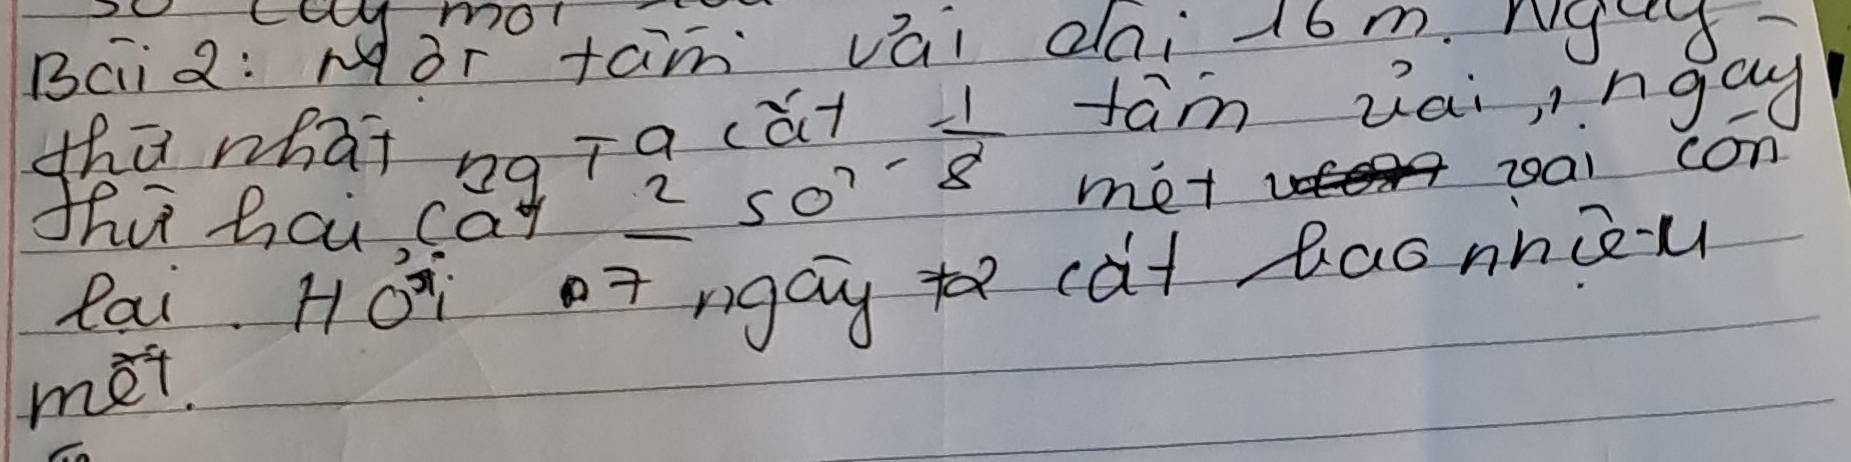 Bài 2: Một tấm vải dài 16 m. Ngày
thứ nhất ng ta cắt 1/8 tấm vải, ngày
thứ hai cắt 2/ số mét vải còn
lại. Hỏi 7 ngày ta cắt bao nhiêu
mét.